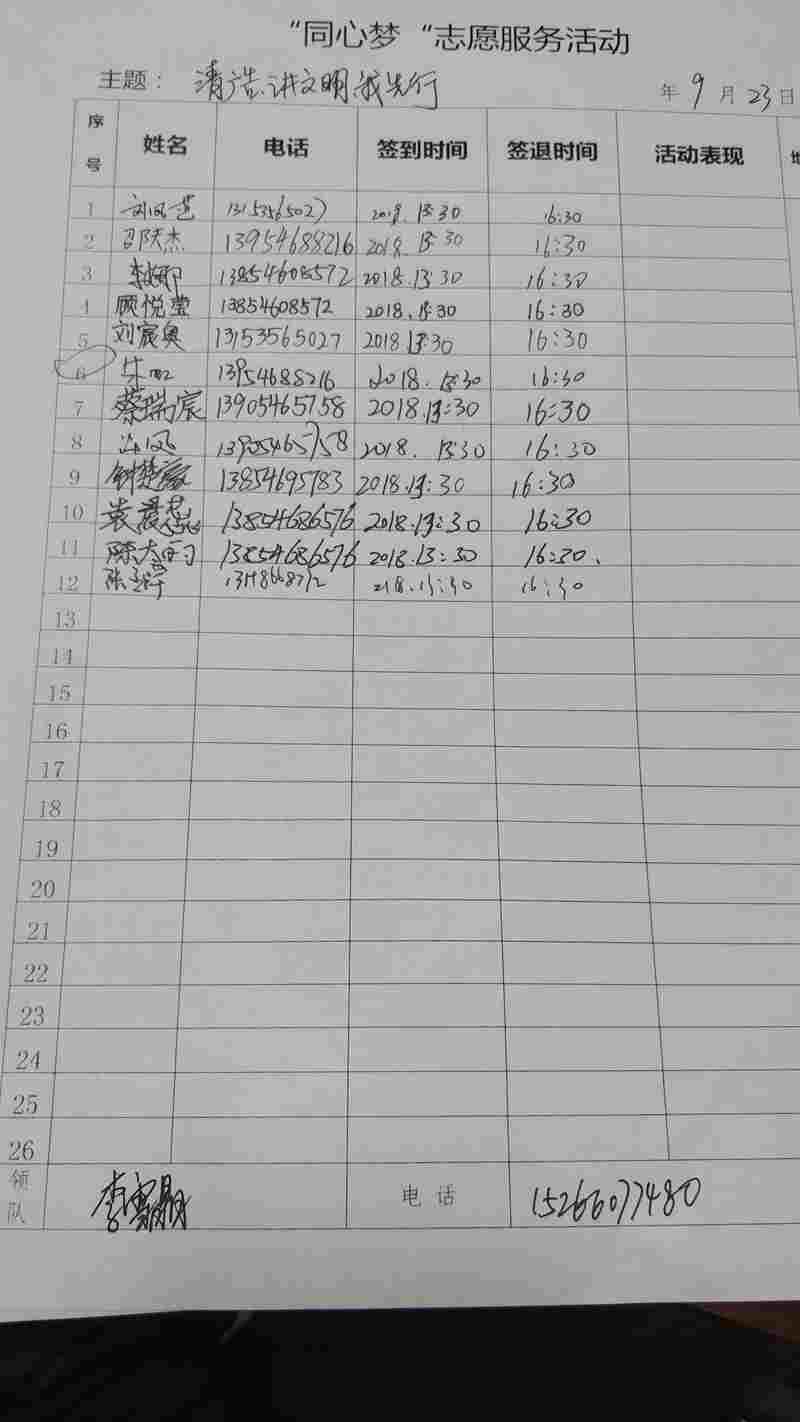 “同心梦“志愿服务活动
主题： 清浩.讲文明我先行 年 9 月 23 日
序号 姓名 电话 签到时间 签退时间 活动表现
1 13153565027 2018.13:30 16:30
2 邵庆杰 13954688216 2018.13:30 16:30
3 13854608572 2018.13:30 16:30
4 顾悦莹 13854608572 2018.13:30 16:30
5 刘宸奥 13153565027 2018.13:30 16:30
6 13954688216 2018.13:30 16:30
7 蔡瑞宸 13905465758 2018.13:30 16:30
8 13905465758 2018. 13:30 16:30
9 13854695783 2018.13:30 16:30
10 13854686576 2018.13:30 16:30
11 13854686576 2018.13:30 16:30.
12 2018.13:30 16:30
13
14
15
16
17
18
19
20
21
22
23
24
25
26
领队 电话 15266077480